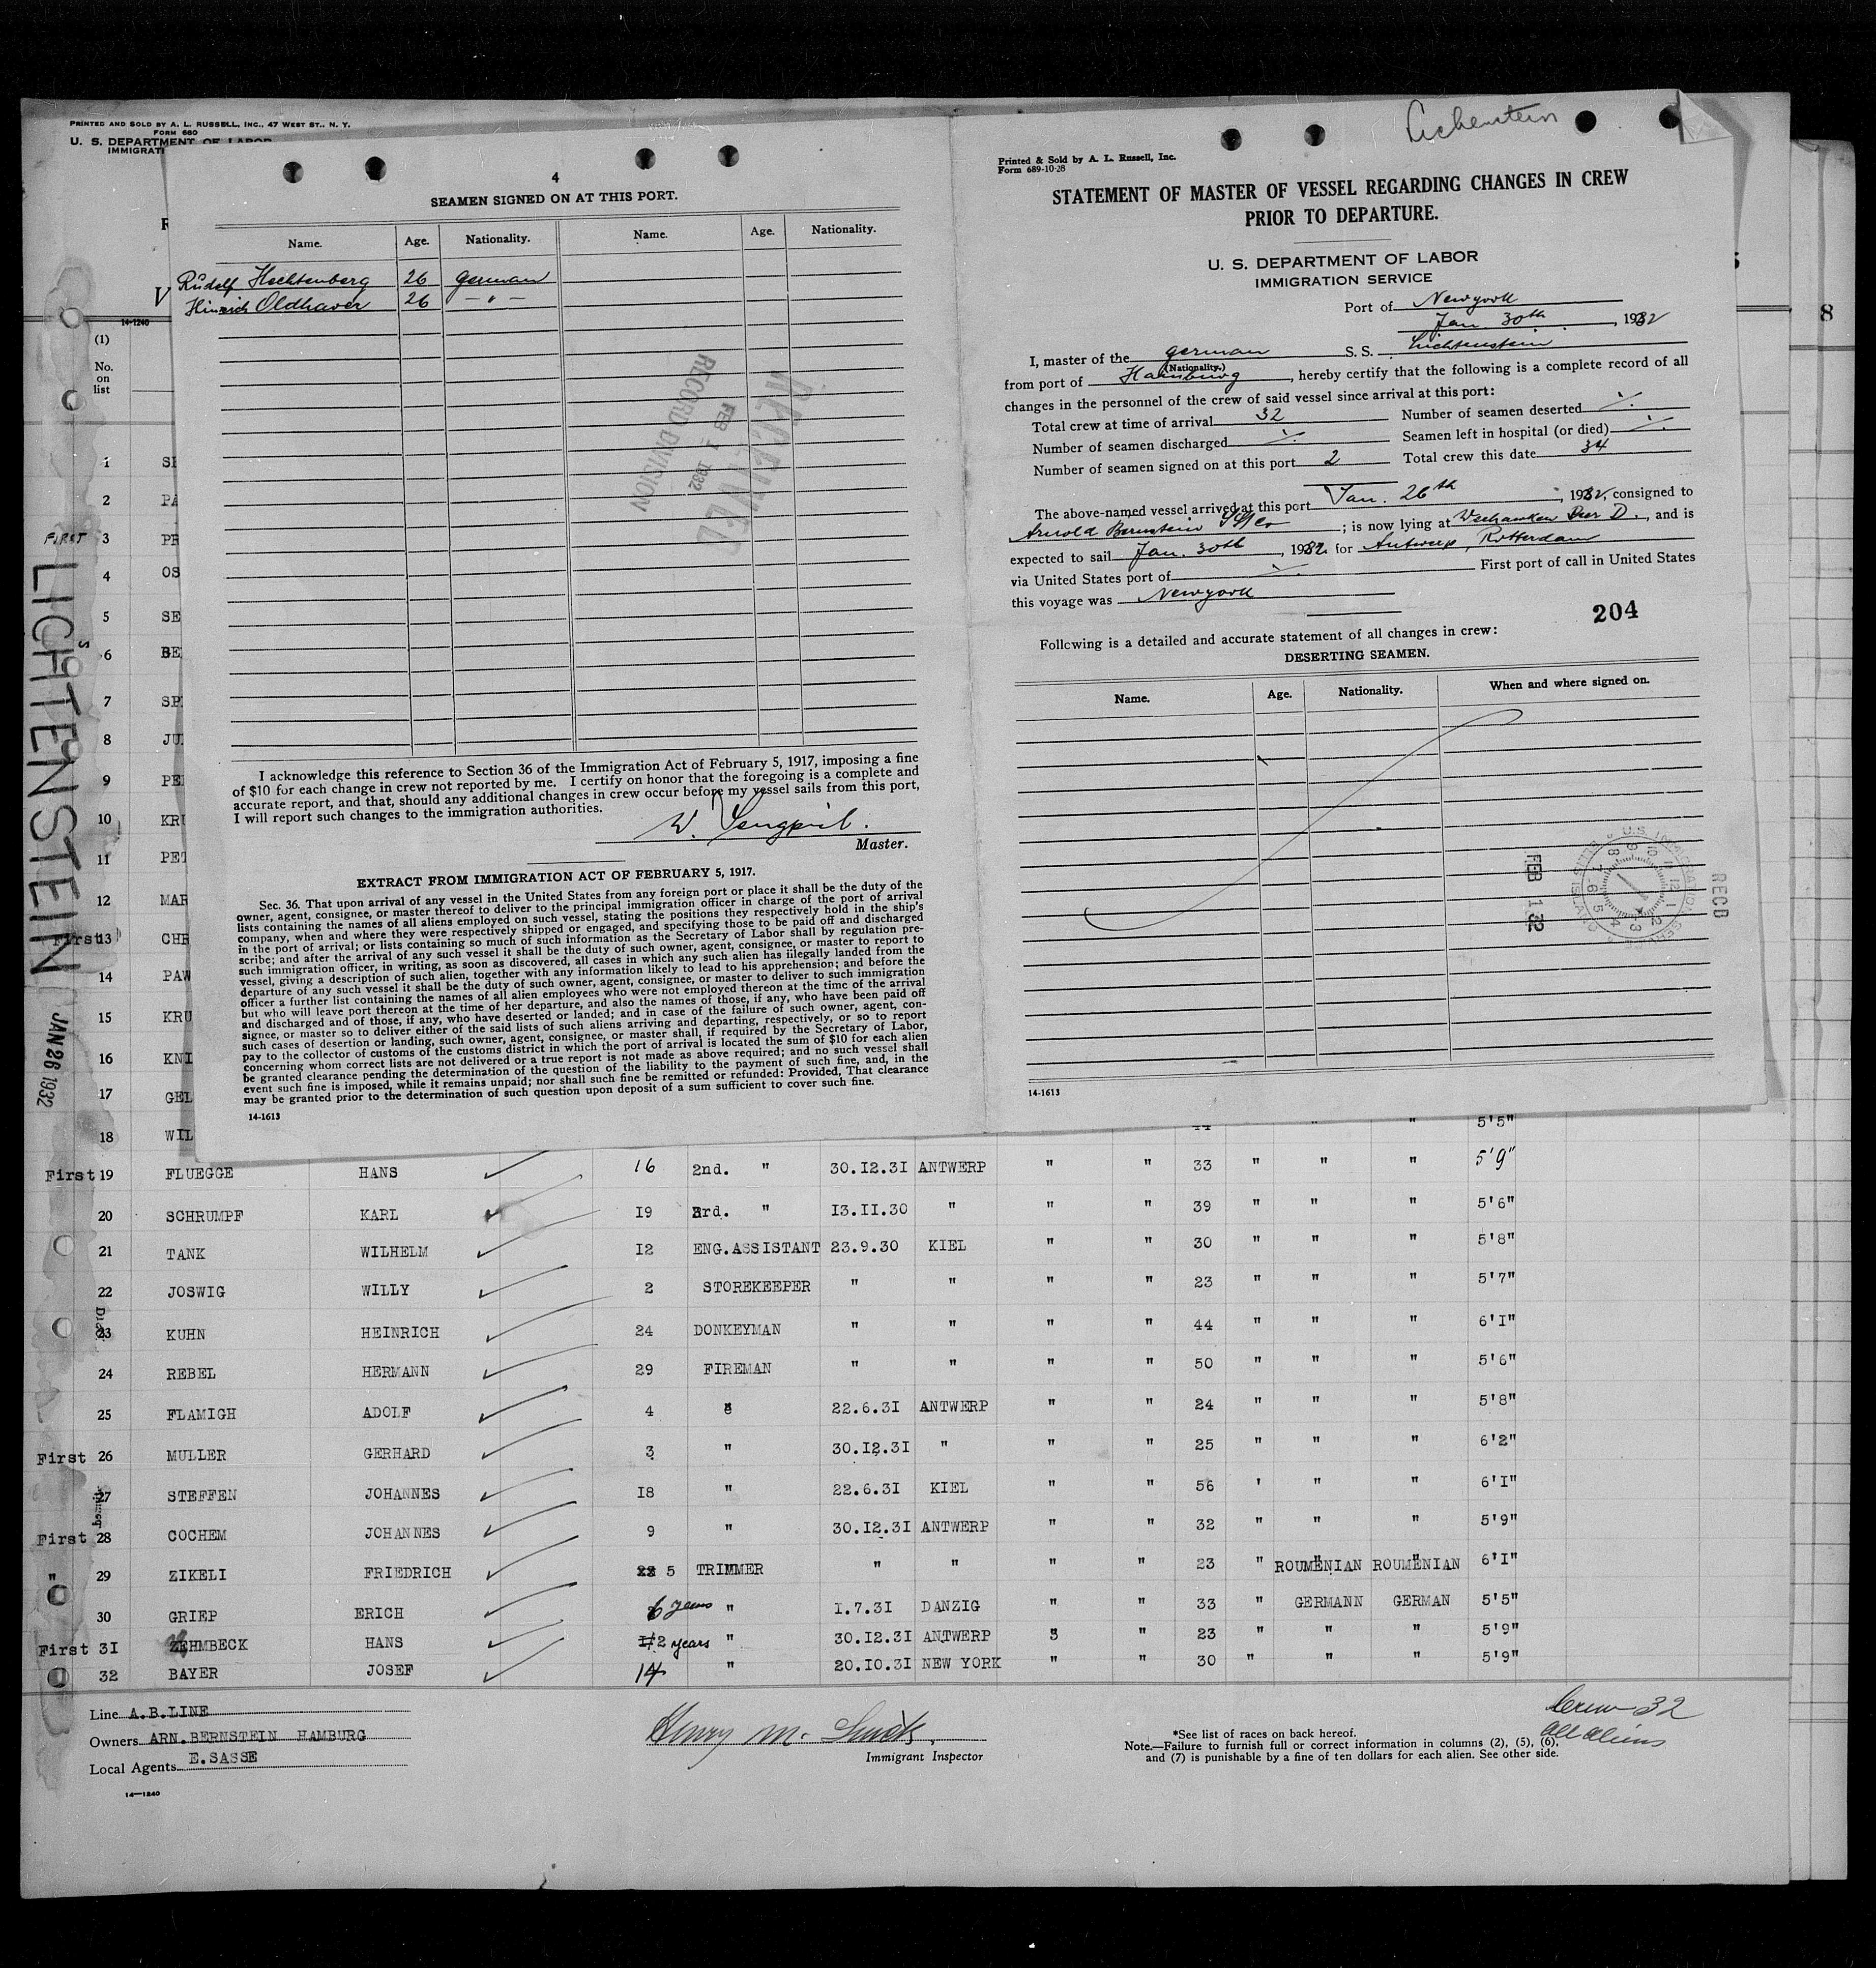 PRINTED AND SOLD BY A. L. RUSSELL, INC., 47 WEST ST., N. Y.
FORM 680
U. S. DEPARTMENT OF LABOR
IMMIGRATI
14-1240
(1)
No.
on
list
LICHTENSTEIN
JAN 26 1932
4
SEAMEN SIGNED ON AT THIS PORT.
Name. Age. Nationality. Name. Age. Nationality.
Rudolf Hechtenberg 26 german
Hinrich Oldhaver 26 – " –
RECEIVED
FEB 1 1932
RECORD DIVISION
I acknowledge this reference to Section 36 of the Immigration Act of February 5, 1917, imposing a fine
of $10 for each change in crew not reported by me. I certify on honor that the foregoing is a complete and
accurate report, and that, should any additional changes in crew occur before my vessel sails from this port,
I will report such changes to the immigration authorities.
W.
Master.
EXTRACT FROM IMMIGRATION ACT OF FEBRUARY 5, 1917.
Sec. 36. That upon arrival of any vessel in the United States from any foreign port or place it shall be the duty of the
owner, agent, consignee, or master thereof to deliver to the principal immigration officer in charge of the port of arrival
lists containing the names of all aliens employed on such vessel, stating the positions they respectively hold in the ship's
company, when and where they were respectively shipped or engaged, and specifying those to be paid off and discharged
in the port of arrival; or lists containing so much of such information as the Secretary of Labor shall by regulation pre-
scribe; and after the arrival of any such vessel it shall be the duty of such owner, agent, consignee, or master to report to
such immigration officer, in writing, as soon as discovered, all cases in which any such alien has illegally landed from the
vessel, giving a description of such alien, together with any information likely to lead to his apprehension; and before the
departure of any such vessel it shall be the duty of such owner, agent, consignee, or master to deliver to such immigration
officer a further list containing the names of all alien employees who were not employed thereon at the time of the arrival
but who will leave port thereon at the time of her departure, and also the names of those, if any, who have been paid off
and discharged and of those, if any, who have deserted or landed; and in case of the failure of such owner, agent, con-
signee, or master so to deliver either of the said lists of such aliens arriving and departing, respectively, or so to report
such cases of desertion or landing, such owner, agent, consignee, or master shall, if required by the Secretary of Labor,
pay to the collector of customs of the customs district in which the port of arrival is located the sum of $10 for each alien
concerning whom correct lists are not delivered or a true report is not made as above required; and no such vessel shall
be granted clearance pending the determination of the question of the liability to the payment of such fine, and, in the
event such fine is imposed, while it remains unpaid; nor shall such fine be remitted or refunded: Provided, That clearance
may be granted prior to the determination of such question upon deposit of a sum sufficient to cover such fine.
14-1613
Lichenstein
Printed & Sold by A. L. Russell, Inc.
Form 689-10-28
STATEMENT OF MASTER OF VESSEL REGARDING CHANGES IN CREW
PRIOR TO DEPARTURE.
U. S. DEPARTMENT OF LABOR
IMMIGRATION SERVICE
Port of Newyork
Jan. 30th, 1932
I, master of the german S. S. Lichtenstein
(Nationality.)
from port of Hamburg, hereby certify that the following is a complete record of all
changes in the personnel of the crew of said vessel since arrival at this port:
Total crew at time of arrival 32 Number of seamen deserted ·/.
Number of seamen discharged ·/. Seamen left in hospital (or died) ·/.
Number of seamen signed on at this port 2 Total crew this date 34
The above-named vessel arrived at this port Jan. 26th, 1932, consigned to
Arnold Bernstein SS Co; is now lying at Weehawken Pier D., and is
expected to sail Jan. 30th, 1932 for Antwerp, Rotterdam
via United States port of ·/. First port of call in United States
this voyage was Newyork
204
Following is a detailed and accurate statement of all changes in crew:
DESERTING SEAMEN.
Name. Age. Nationality. When and where signed on.
RECD
FEB 1 32
14-1613
8
1 SI
2 PA
FIRST 3 PR
4 OS
5 SE
6 BE
7 SP
8 JU
9 PE
10 KRU
11 PET
12 MAR
First 13 CHR
14 PAW
15 KRU
16 KNI
17 GEL
18 WIL 44 " " 5'5"
First 19 FLUEGGE HANS 16 2nd. " 30.I2.3I ANTWERP " " 33 " " " 5'9"
20 SCHRUMPF KARL I9 3rd. " I3.II.30 " " " 39 " " " 5'6"
21 TANK WILHELM I2 ENG.ASSISTANT 23.9.30 KIEL " " 30 " " " 5'8"
22 JOSWIG WILLY 2 STOREKEEPER " " " " 23 " " " 5'7"
23 KUHN HEINRICH 24 DONKEYMAN " " " " 44 " " " 6'I"
24 REBEL HERMANN 29 FIREMAN " " " " 50 " " " 5'6"
25 FLAMIGH ADOLF 4 " 22.6.3I ANTWERP " " 24 " " " 5'8"
First 26 MULLER GERHARD 3 " 30.I2.3I " " " 25 " " " 6'2"
27 STEFFEN JOHANNES I8 " 22.6.3I KIEL " " 56 ' " " 6'I"
First 28 COCHEM JOHANNES 9 " 30.I2.3I ANTWERP " " 32 " " " 5'9"
" 29 ZIKELI FRIEDRICH 5 TRIMMER " " " " 23 " ROUMENIAN ROUMENIAN 6'I"
30 GRIEP ERICH 6 years " I.7.3I DANZIG " " 33 " GERMANN GERMAN 5'5"
First 3I ZEHMBECK HANS 2 years " 30.I2.3I ANTWERP " " 23 " " " 5'9"
32 BAYER JOSEF 14 " 20.I0.3I NEW YORK " " 30 " " " 5'9"
Line A.B.LINE
Owners ARN.BERNSTEIN HAMBURG
Local Agents E.SASSE
14—1240
Henry M.
Immigrant Inspector
*See list of races on back hereof.
Note.—Failure to furnish full or correct information in columns (2), (5), (6),
and (7) is punishable by a fine of ten dollars for each alien. See other side.
Crew 32
All aliens